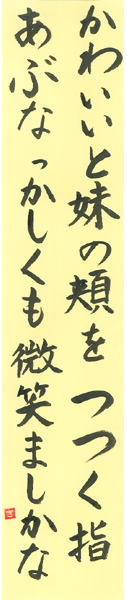 かわいいと妹の頬をつつく指
あぶなっかしくも微笑ましかな